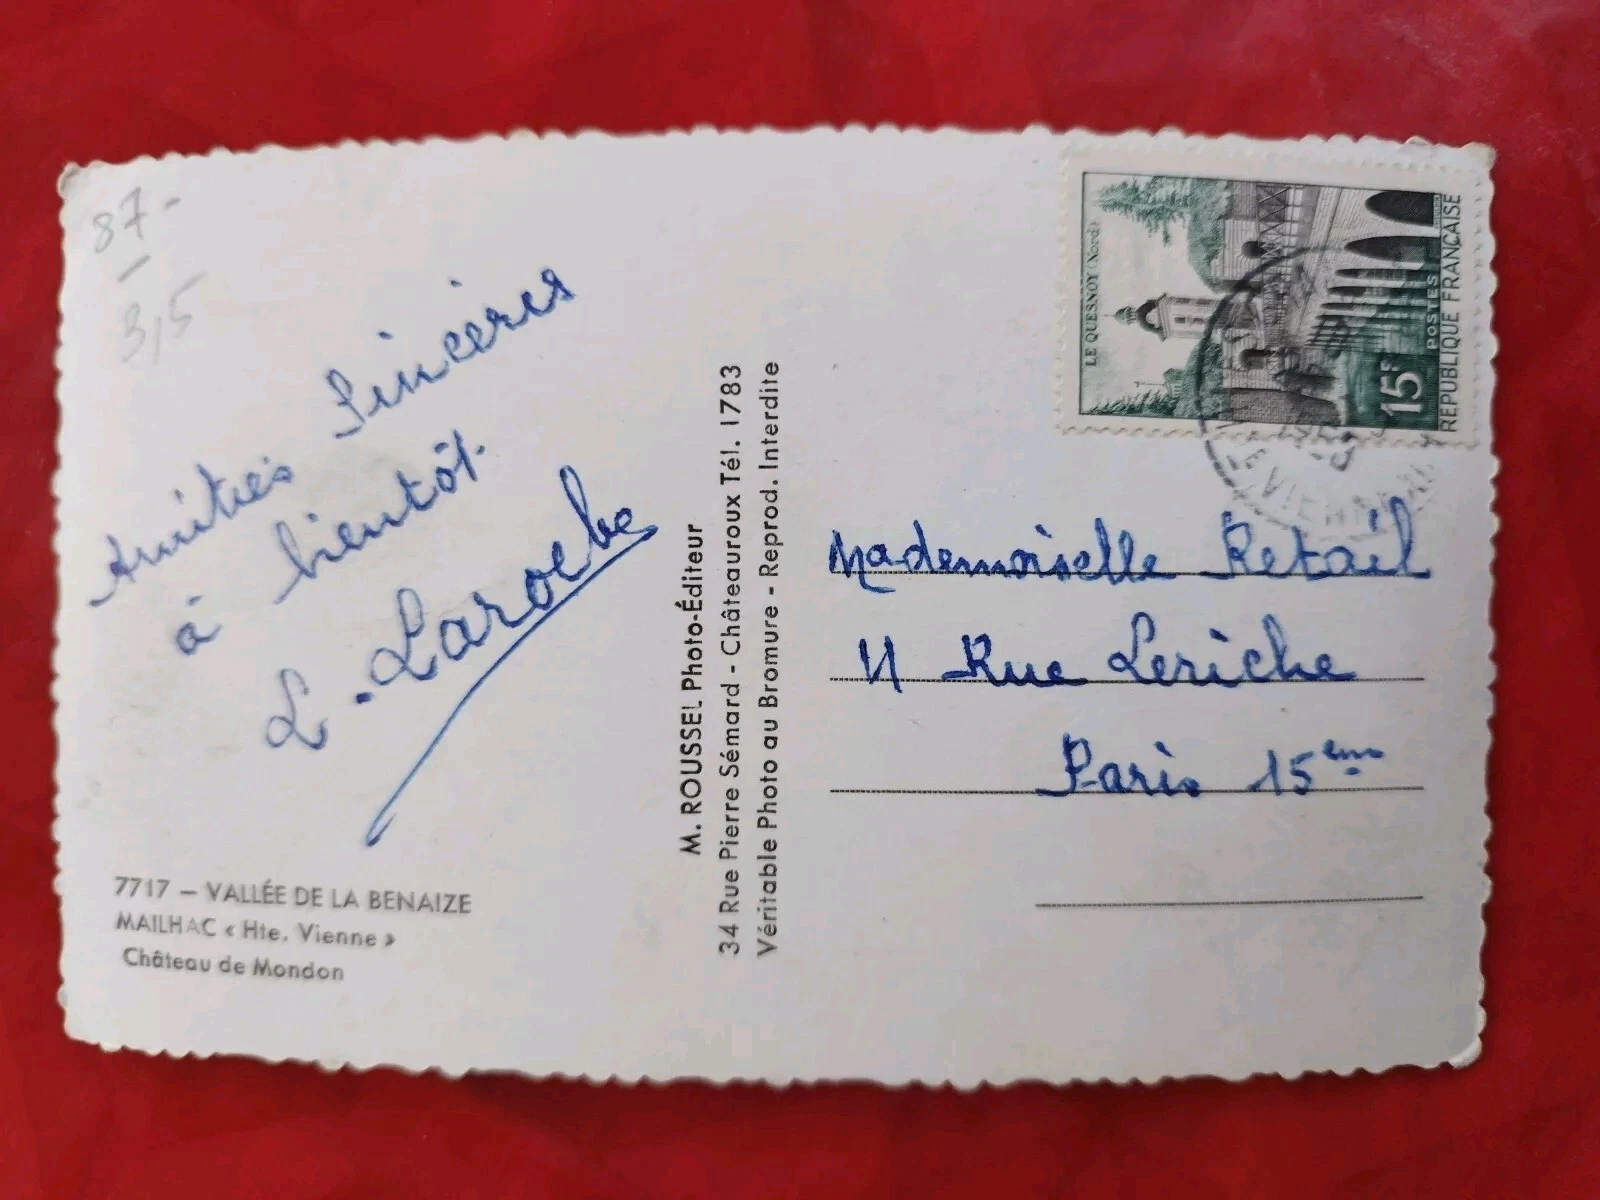 87-
3,5
Amitiés Sincères
à bientôt.
L. Laroche
7717 – VALLÉE DE LA BENAIZE
MAILHAC « Hte. Vienne »
Château de Mondon
M. ROUSSEL Photo-Éditeur
34 Rue Pierre Sémard - Châteauroux Tél. 1783
Véritable Photo au Bromure - Reprod. Interdite
LE QUESNOY (Nord)
15F
POSTES
REPUBLIQUE FRANÇAISE
VIENNE
Mademoiselle Retail
11 Rue Leriche
Paris 15eme